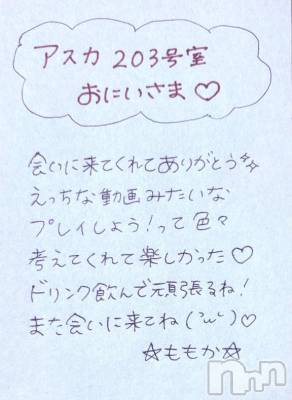 アスカ 203号室
おにいさま♡
会いに来てくれてありがとう
えっちな動画みたいな
プレイしよう!って色々
考えてくれて楽しかった♡
ドリンク飲んで頑張るね!
また会いに来てね('ω')♡
☆ももか☆